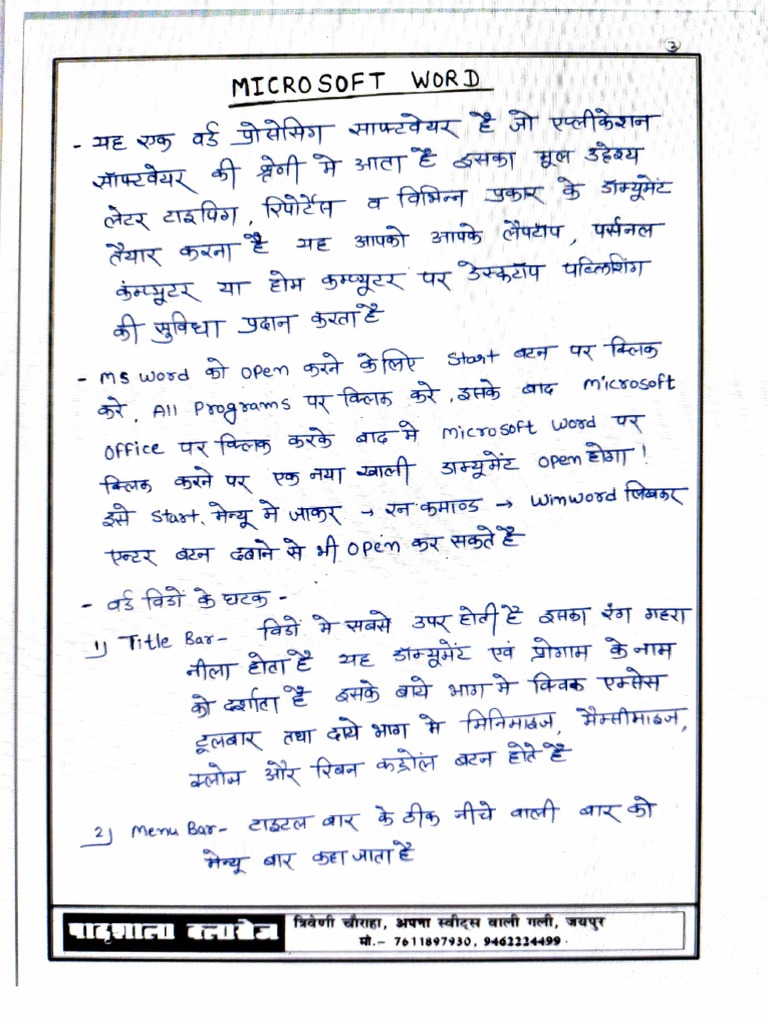 3
MICROSOFT WORD
- यह एक वर्ड प्रोसेसिंग साफ्टवेयर है जो एप्लीकेशन
सॉफ्टवेयर की श्रेणी मे आता है इसका मूल उद्देश्य
लेटर टाइपिंग, रिपोर्टस व विभिन्न प्रकार के डॉक्यूमेंट
तैयार करना है यह आपको आपके लैपटाप, पर्सनल
कंम्प्यूटर या होम कम्प्यूटर पर डेस्कटॉप पब्लिशिंग
की सुविधा प्रदान करता है
- MS Word को open करने के लिए Start बटन पर क्लिक
करे, All Programs पर क्लिक करे, इसके बाद Microsoft
Office पर क्लिक करके बाद मे Microsoft Word पर
क्लिक करने पर एक नया खाली डाक्यूमेंट open होगा!
इसे Start मेन्यू मे जाकर → रन कमाण्ड → Winword लिखकर
एन्टर बटन दबाने से भी open कर सकते है
- वर्ड विडों के घटक -
1) Title Bar- विडों मे सबसे उपर होती है इसका रंग गहरा
नीला होता है यह डॉक्यूमेंट एवं प्रोगाम के नाम
को दर्शाता है इसके बाये भाग मे क्विक एक्सेस
टूलबार तथा दाये भाग मे मिनिमाइज, मैक्सीमाइज,
क्लोज और रिबन कट्रोल बटन होते है
2) Menu Bar- टाइटल बार के ठीक नीचे वाली बार को
मेन्यू बार कहा जाता है
पाठ्शाला क्लासेज
त्रिवेणी चौराहा, अपना स्वीट्स वाली गली, जयपुर
मो.- 7611897930, 9462224499